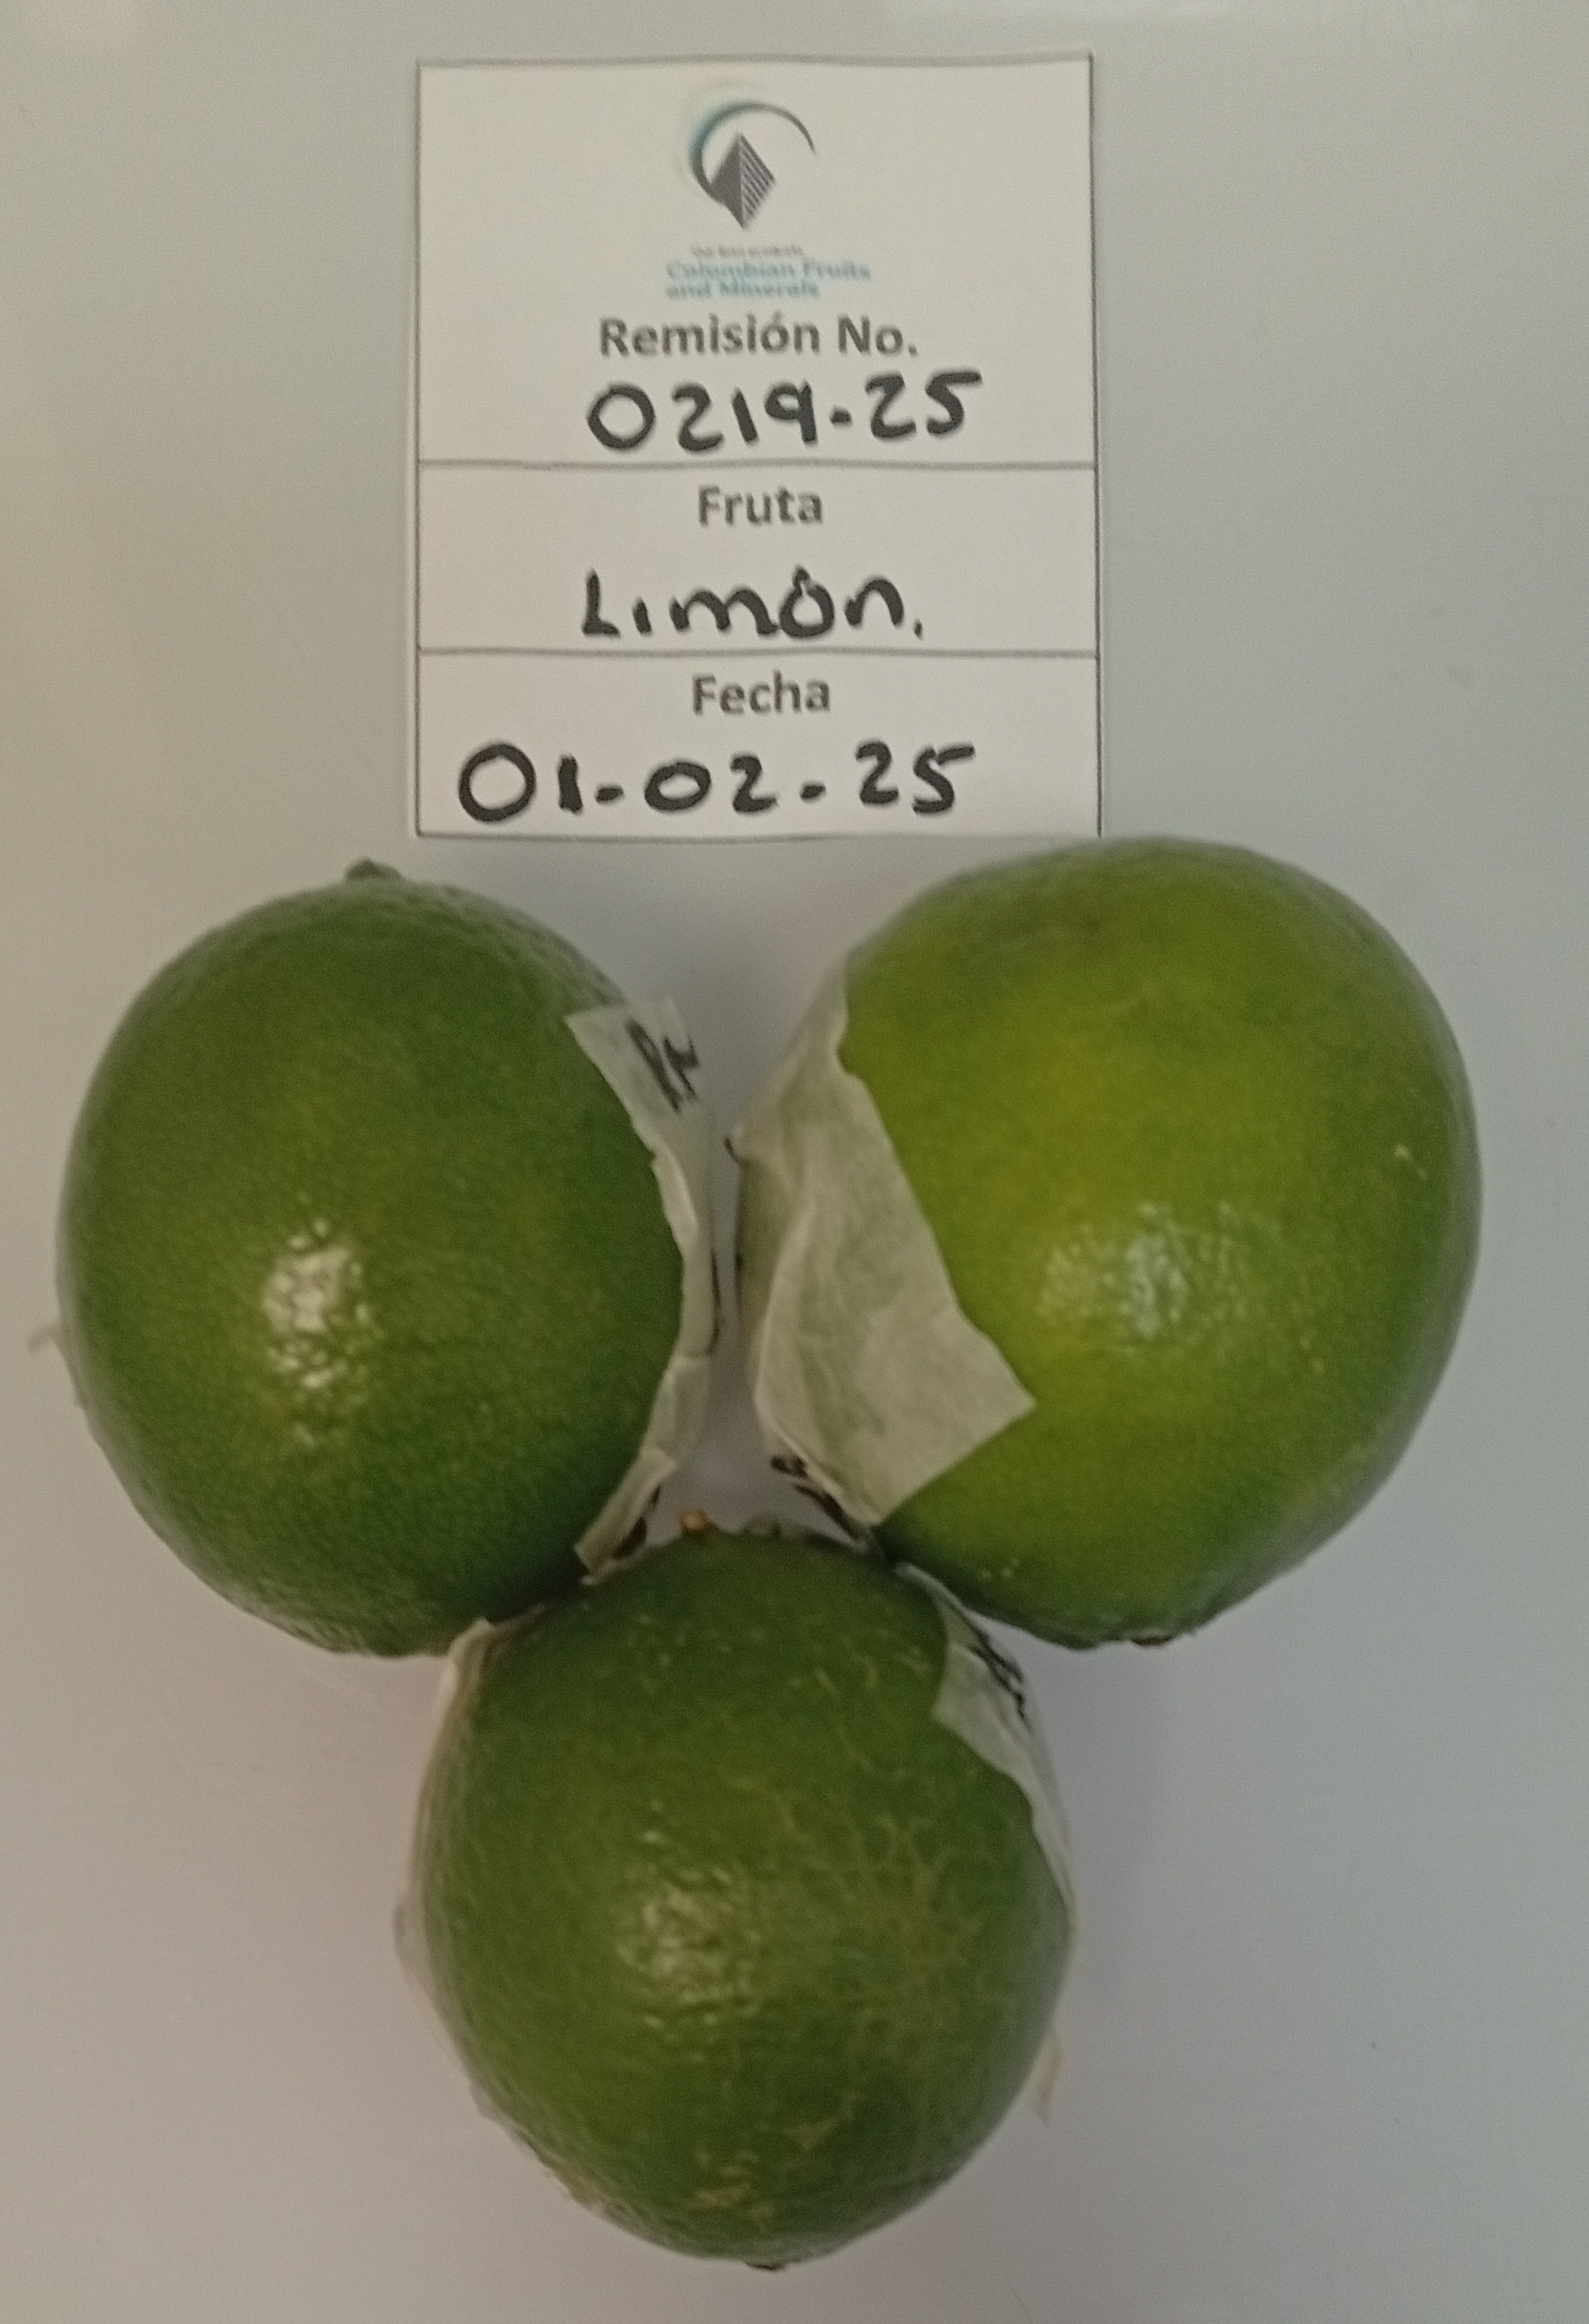 Columbian Fruits
and Minerals
Remisión No.
0219-25
Fruta
Limón.
Fecha
01-02-25